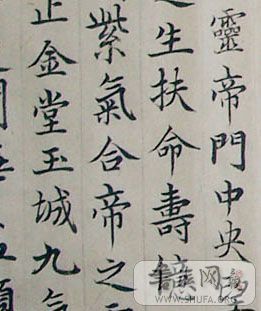 靈帝門中央
之生扶命壽
紫氣合帝之
正金堂玉城九氣
書法网
WWW.SHUFA.ORG